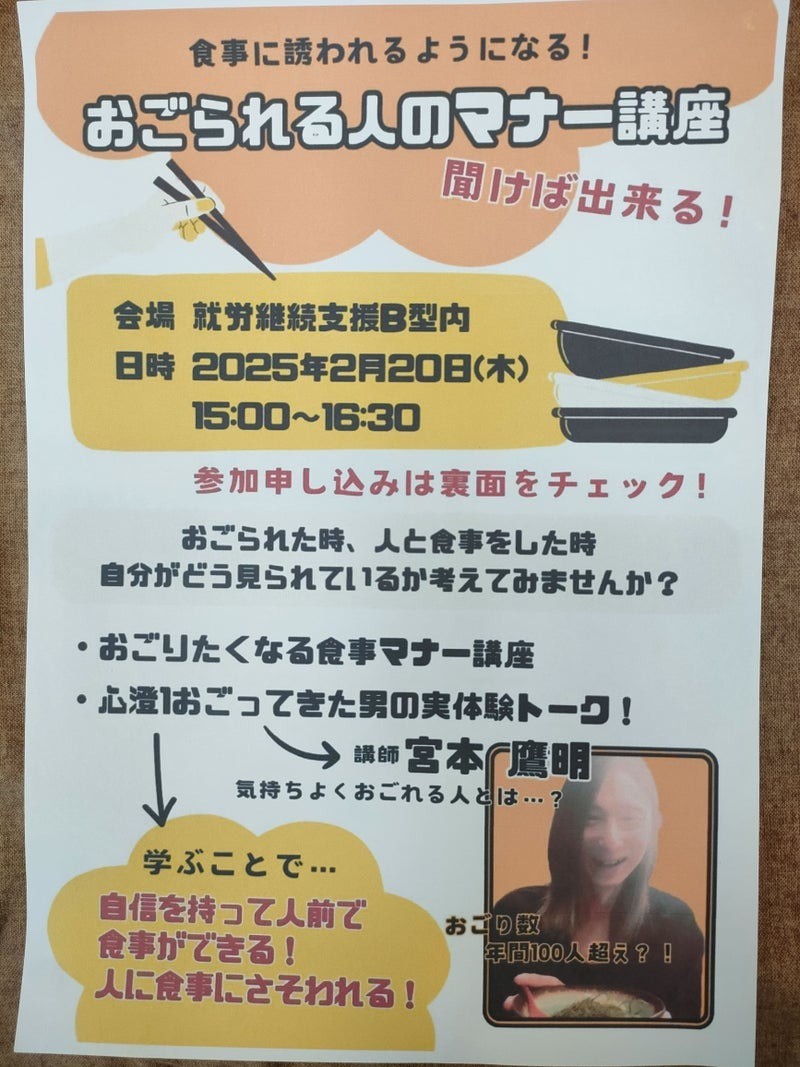 食事に誘われるようになる！
おごられる人のマナー講座
聞けば出来る！
会場 就労継続支援B型内
日時 2025年2月20日(木)
15:00～16:30
参加申し込みは裏面をチェック！
おごられた時、人と食事をした時
自分がどう見られているか考えてみませんか？
・おごりたくなる食事マナー講座
・心澄1おごってきた男の実体験トーク！
講師 宮本 鷹明
気持ちよくおごれる人とは…？
学ぶことで…
自信を持って人前で
食事ができる！
人に食事にさそわれる！
おごり数
年間100人超え？！